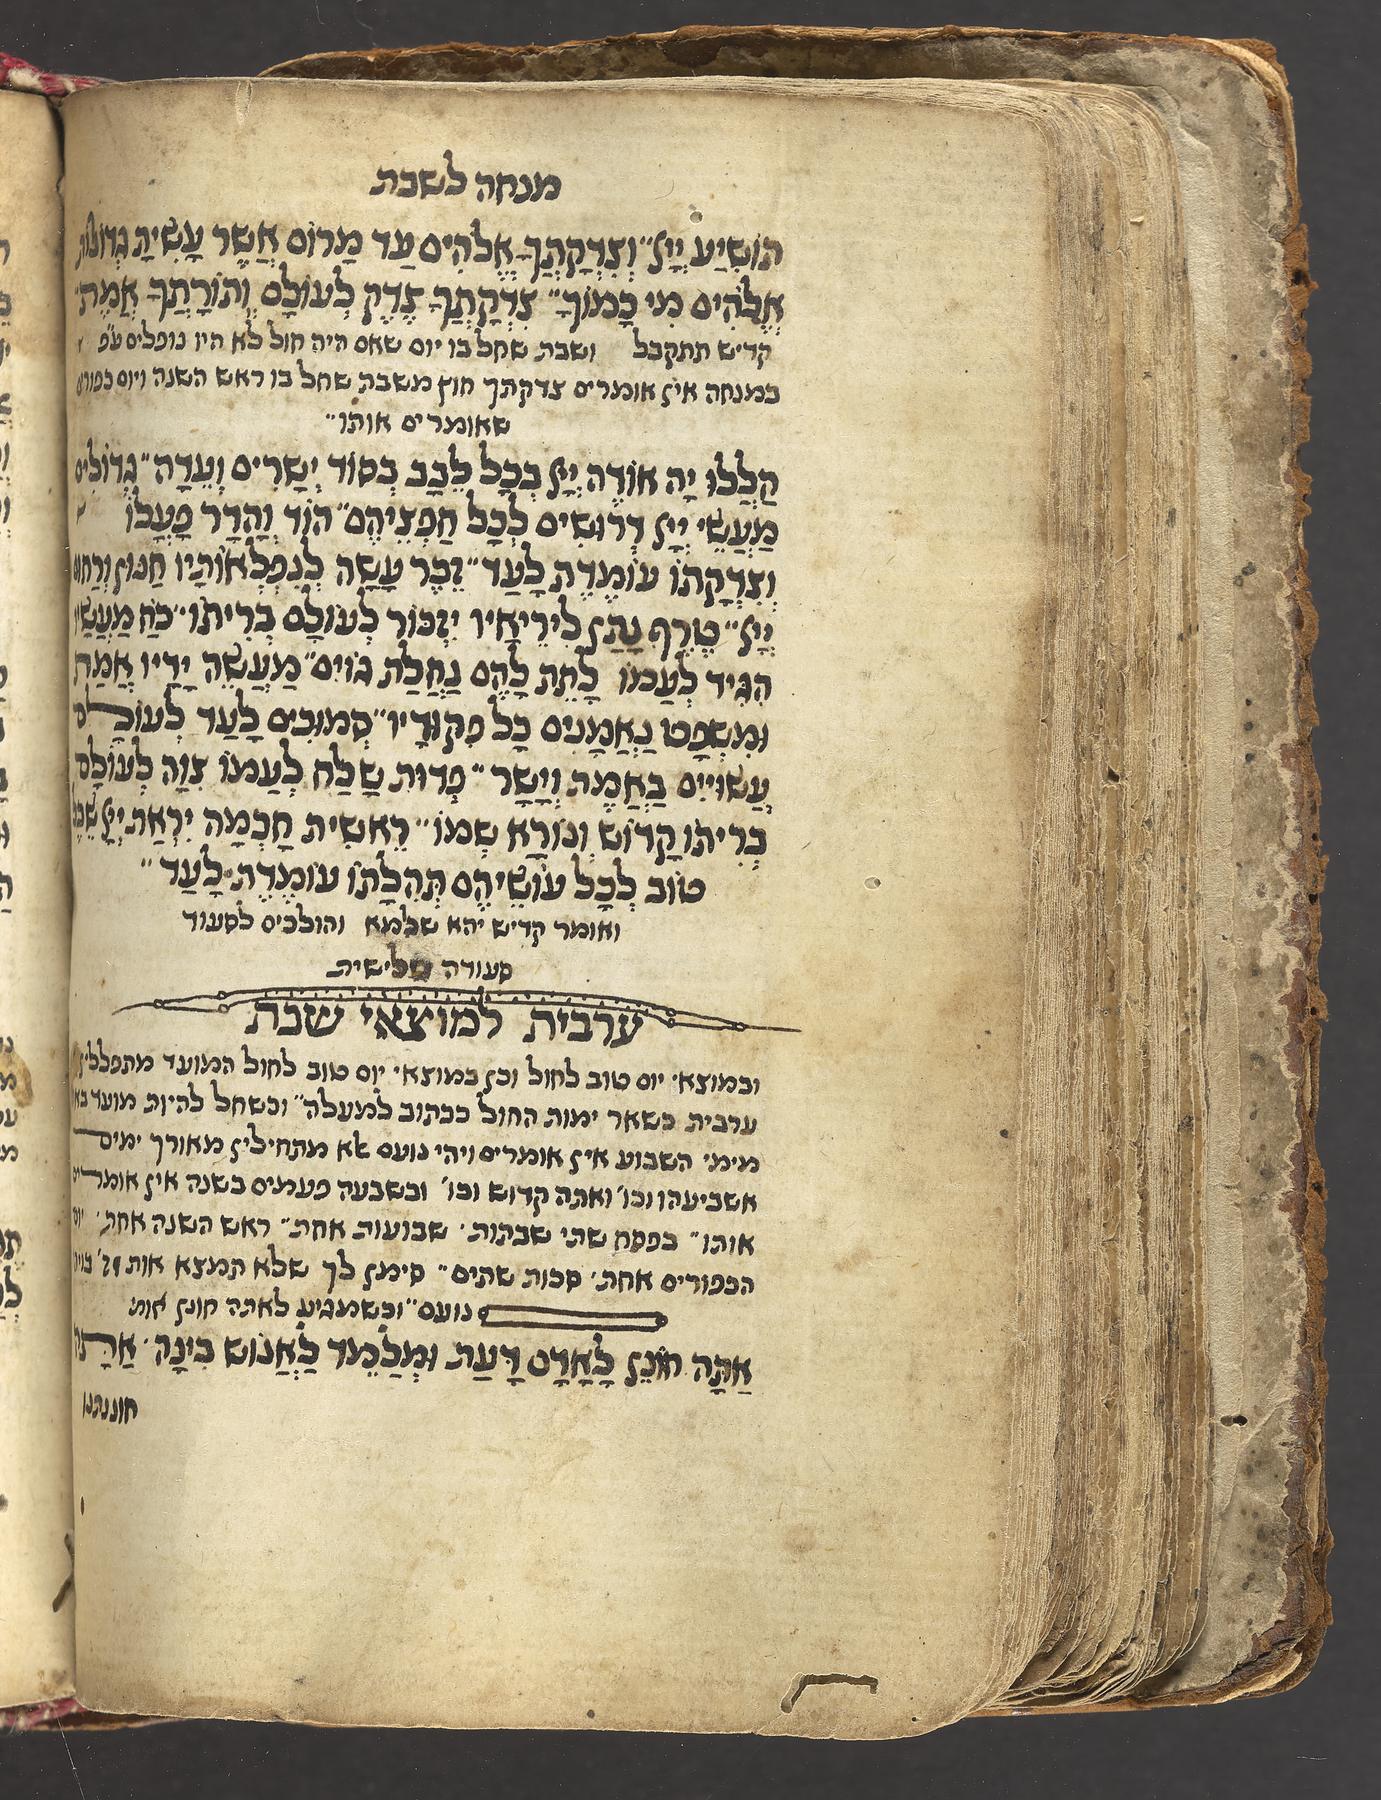 מנחה לשבת
תוֹשִׁיַע יְיָ״ וְצִדְקָתְךָ אֱלֹהִים עַד מַרוֹם אֲשֶׁר עָשִׂיתָ גְדוֹלוֹת
אֱלֹהִים מִי כָמוֹךָ״ צִדְקָתְךָ צֶדֶק לְעוֹלָם וְתוֹרָתְךָ אֱמֶת״
קדיש תתקבל ושבת שחל בו יום שאם היה חול לא היו נופלים עפ
במנחה אין אומרים צדקתך חוץ משבת שחל בו ראש השנה ויום כפורים
שאומרים אותו״
הַלֲלוּ יָה אוֹדֶה יְיָ בְכָל לֵבָב בְסוֹד יְשָרִים וְעֵדָה״ גְדוֹלִים
מַעֲשֵׂי יְיָ דְרוּשִׁים לְכָל חֶפְצֵיהֶם״ הוֹד וְהָדָר פָעֳלוֹ
וְצִדְקָתוֹ עוֹמֶדֶת לָעַד״ זֵכֶר עָשָׂה לְנִפְלְאוֹתָיו חַנוּן וְרַחוּם
יְיָ״ טֶרֶף נָתַן לִירֵיאָיו יִזְכּוֹר לְעוֹלָם בְרִיתוֹ״ כֹחַ מַעֲשָׂיו
הִגִיד לְעַמוֹ לָתֵת לָהֶם נַחֲלַת גוֹיִם״ מַעֲשֵׂה יָדָיו אֱמֶת
וּמִשְׁפָט נֶאֱמָנִים כָל פִקוּדָיו״ סְמוּכִים לָעַד לְעוֹלָם
עֲשׂוּיִים בֶאֱמֶת וְיָשָר״ פְדוּת שָלַח לְעַמוֹ צִוָה לְעוֹלָם
בְרִיתוֹ קָדוֹשׁ וְנוֹרָא שְמוֹ״ רֵאשִׁית חָכְמָה יִרְאַת יְיָ שֵׂכֶל
טוֹב לְכָל עוֹשֵׂיהֶם תְהִלָתוֹ עוֹמֶדֶת לָעַד״
ואומר קדיש יהא שלמא והולכים לסעוד
סעודה שלישית
ערבית למוצאי שבת
ובמוצאי יום טוב לחול וכן במוצאי יום טוב לחול המועד מתפללין
ערבית כשאר ימות החול ככתוב למעלה״ וכשחל להיות מועד בא
מימי השבוע אין אומרים ויהי נועם לא מתחילין מאורך ימים
אשביעהו וכו׳ ואתה קדוש וכו׳ ובשבעה פעמים בשנה אין אומרים
אותו״ בפסח שתי שבתות׳ שבועות אחת״ ראש השנה אחת׳ יום
הכפורים אחת׳ סכות שתים״ סימן לך שלא תמצא אות ז׳ בויהי
נועם״ וכשמגיע לאתה חונן אומ׳
אַתָה חוֹנֵן לָאָדָם דָעַת וּמְלַמֵד לֶאֱנוֹשׁ בִינָה׳ אַתָה
חוננתנו